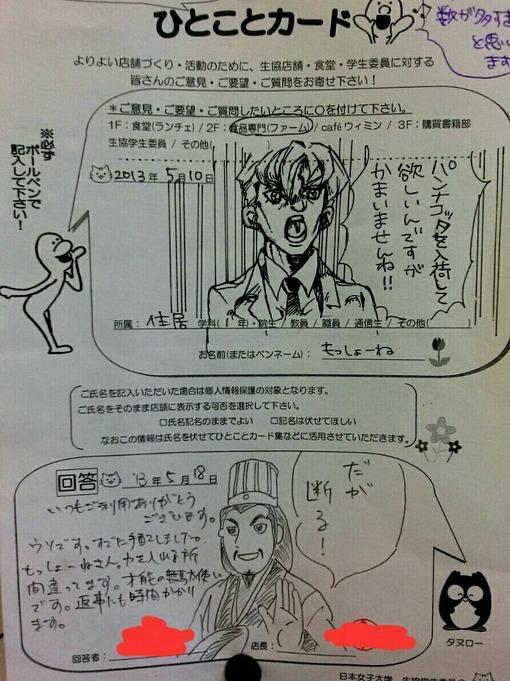 ひとことカード
数が多すぎ
と思い
ます
よりよい店舗づくり・活動のために、生協店舗・食堂・学生委員に対する
皆さんのご意見・ご要望・ご質問をお寄せ下さい！
※必ず
ボールペンで
記入して下さい！
*ご意見・ご要望・ご質問したいところに○を付けて下さい。
1F：食堂(ランチェ) / 2F：食品専門(ファーム) / caféウィミン / 3F：購買書籍部
生協学生委員 / その他(
2013年 5月 10日
パンナコッタを入荷して
欲しいんですが
かまいませんね!!
所属： 住居 学科( 年)・院生 / 教員 / 職員 / 通信生 / その他( )
お名前(またはペンネーム)： もっしょーね
ご氏名を記入いただいた場合は個人情報保護の対象となります。
ご氏名をそのまま店頭に表示する可否を選択して下さい。
□氏名記名のままでよい □記名は伏せてほしい
なおこの情報は氏名を伏せてひとことカード集などに活用させていただきます。
回答 '13年 5月 18日
いつもご利用ありがとう
ございます。
ウソです。すでに手配しました〜。
もっしょーねさん。力を入れる所
間違ってます。才能の無駄使い
です。返事にも時間かかり
ます。
だが
断る！
回答者：
店長：
タヌロー
日本女子大学 生協学生委員会